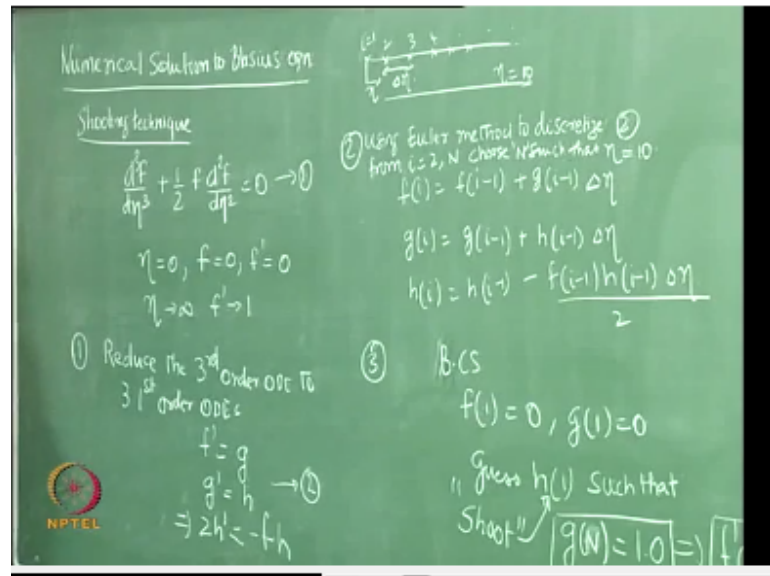 Numerical Solution to Blasius eqn
Shooting technique
d³f/dη³ + 1/2 f d²f/dη² = 0 → ①
η=0, f=0, f'=0
η→∞ f'→1
① Reduce the 3rd order ODE to
3 1st order ODEs
f' = g
g' = h → ②
⇒ 2h' = -fh
NPTEL
i=1 2 3 4
Δη
η=10
② Using Euler method to discretize ②
from i=2, N choose 'N' such that η=10.
f(i) = f(i-1) + g(i-1) Δη
g(i) = g(i-1) + h(i-1) Δη
h(i) = h(i-1) - f(i-1)h(i-1) Δη / 2
③ B.CS
f(1) = 0, g(1) = 0
Guess h(1) such that
"Shoot"
g(N) = 1.0 ⇒ f'